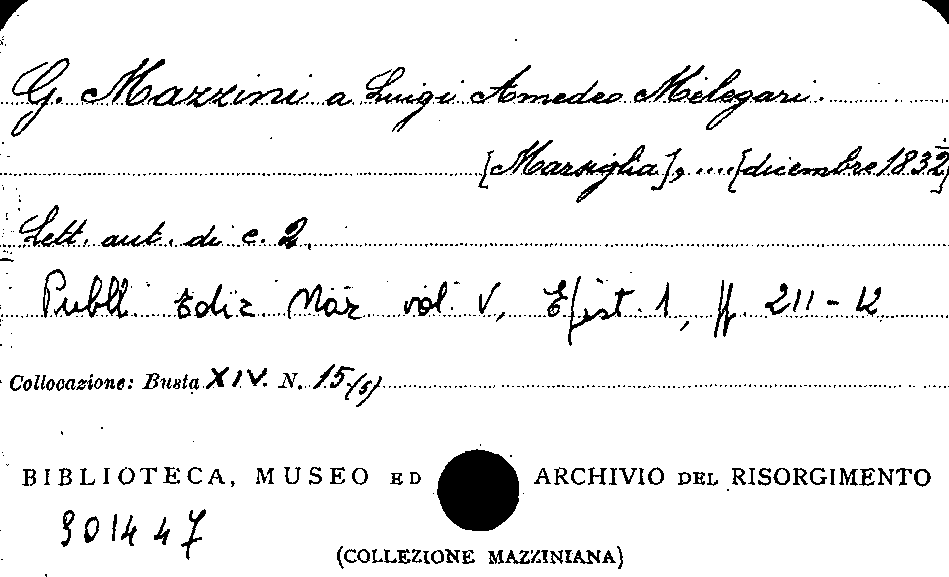 G. Mazzini a Luigi Amedeo Melegari.
[Marsiglia], .... [dicembre 1832]
Lett. aut. di c. 2.
Pubbl. Ediz. Naz. vol. V, Epist. 1, pp. 211-12
Collocazione: Busta XIV. N. 15/(5)
BIBLIOTECA, MUSEO ED ARCHIVIO DEL RISORGIMENTO
901447
(COLLEZIONE MAZZINIANA)